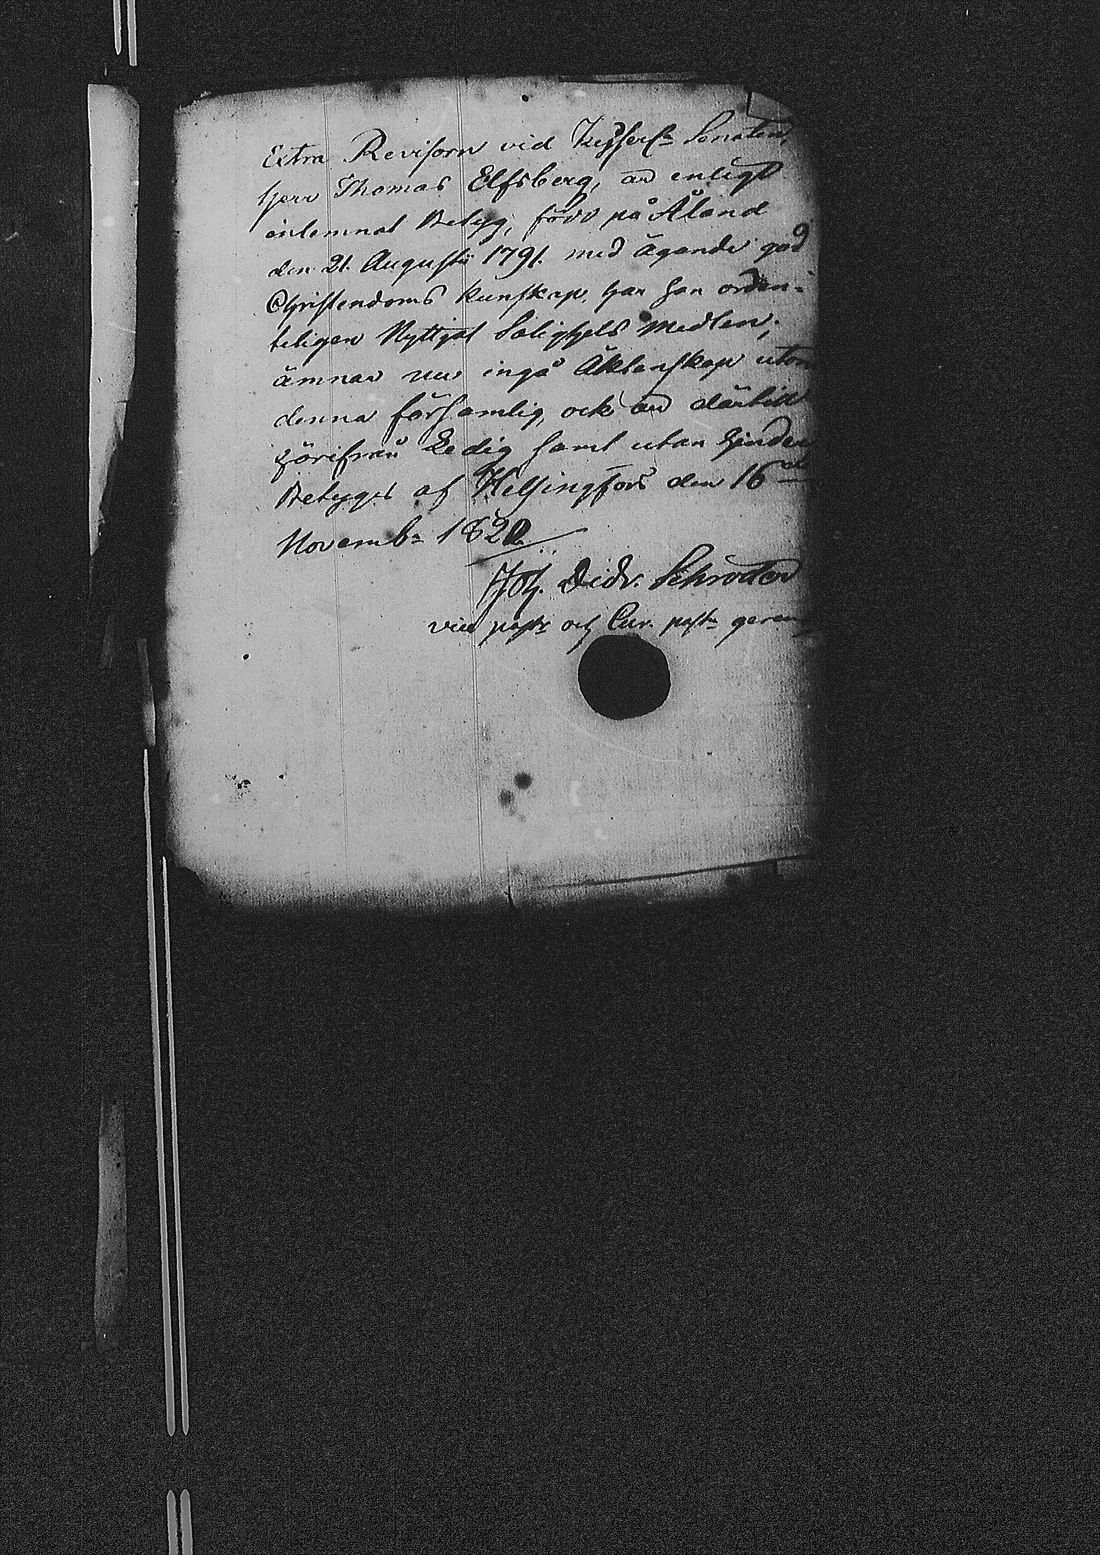 Extra Revisorn vid Kejserl. Senaten,
herr Thomas Elfsberg, är enligt
inlemnat Betyg, född på Åland
den 21. Augusti 1791. med ägande god
Christendoms kunskap, har han orden-
teligen Nyttjat Salighets Medlen,
ämnar nu ingå Äktenskap utom
denna församlig, och är därtill
härifrån Ledig samt utan hinder
Betygat af Helsingfors den 16
Novemb: 1820
Joh. Didr. Schröder
vice past: och Cur. past: